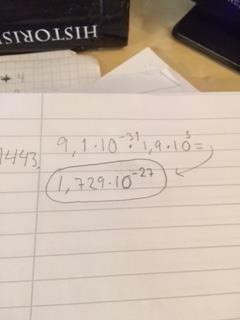 HISTORIS
4
1443. 9,1·10⁻³¹·1,9·10³=
1,729·10⁻²⁷